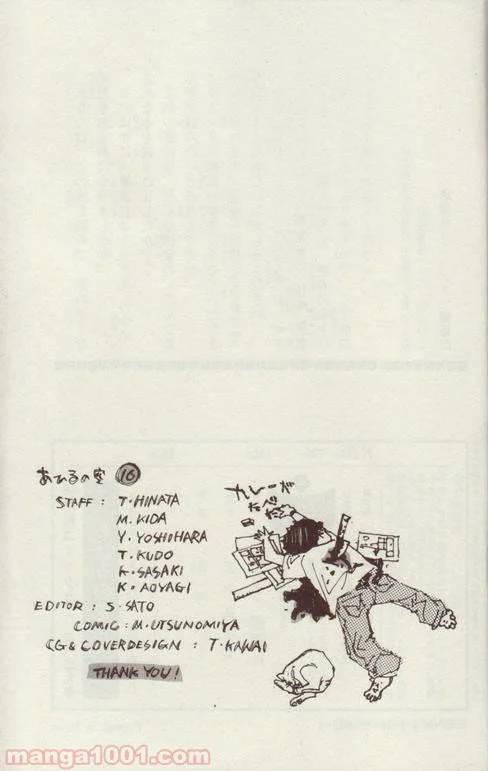 あひるの空 16
STAFF : T・HINATA
M・KIDA
Y・YOSHIHARA
T・KUDO
K・SASAKI
K・AOYAGI
EDITOR : S・SATO
COMIC : M・UTSUNOMIYA
CG & COVERDESIGN : T・KAWAI
THANK YOU!
カレーが
たべ
manga1001.com